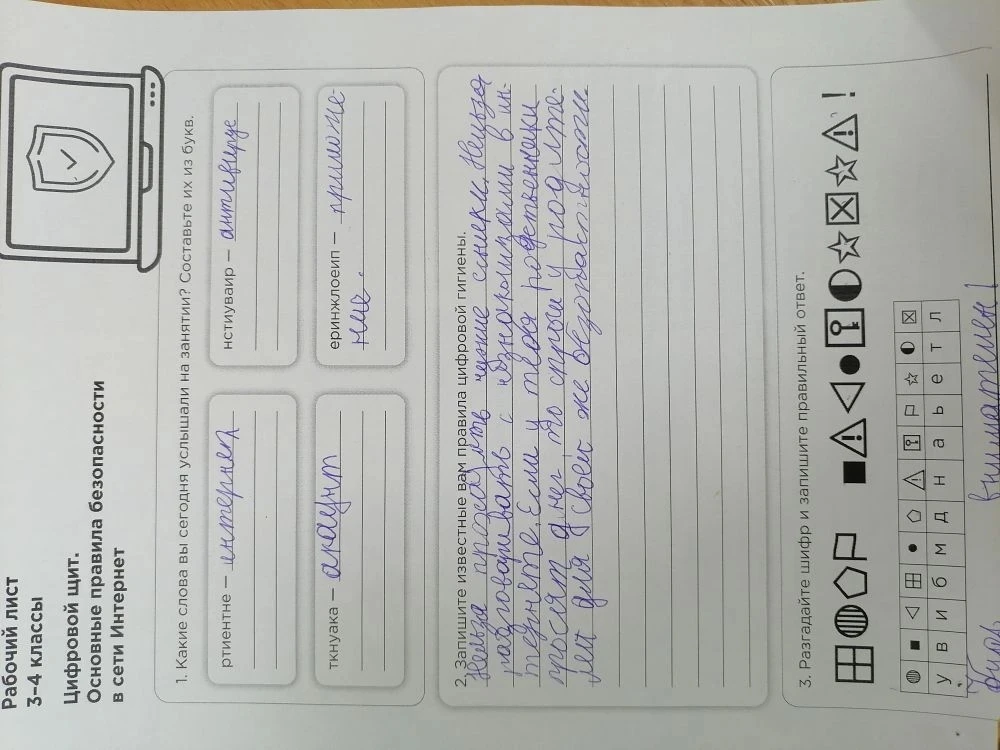 Рабочий лист
3–4 классы
Цифровой щит.
Основные правила безопасности
в сети Интернет
1. Какие слова вы сегодня услышали на занятии? Составьте их из букв.
ртиентне – интернет
нстиуваир – антивирус
ткнуака – акаунт
еринжлоеип – приложе-
ние.
2. Запишите известные вам правила цифровой гигиены.
Нельзя чужие ссылки. Нельзя
разговаривать с незнакомцами в ин-
тернете. Если у твоя родственники
просят д нег то спроси у род ите-
лей для своей же безопасности
3. Разгадайте шифр и запишите правильный ответ.
!
у в и б м д н а ь е т л
Будь внимателен!